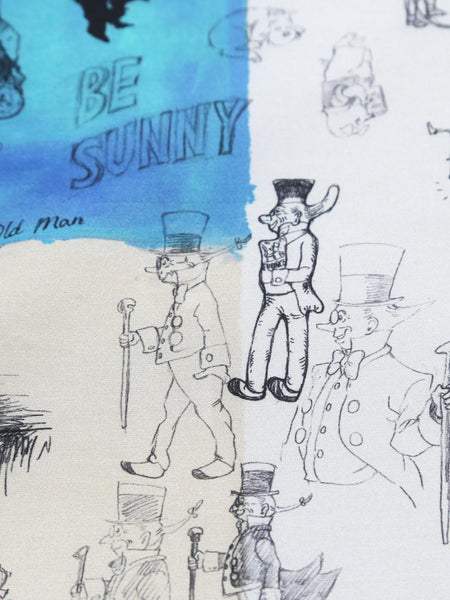 BE
SUNNY
Old Man